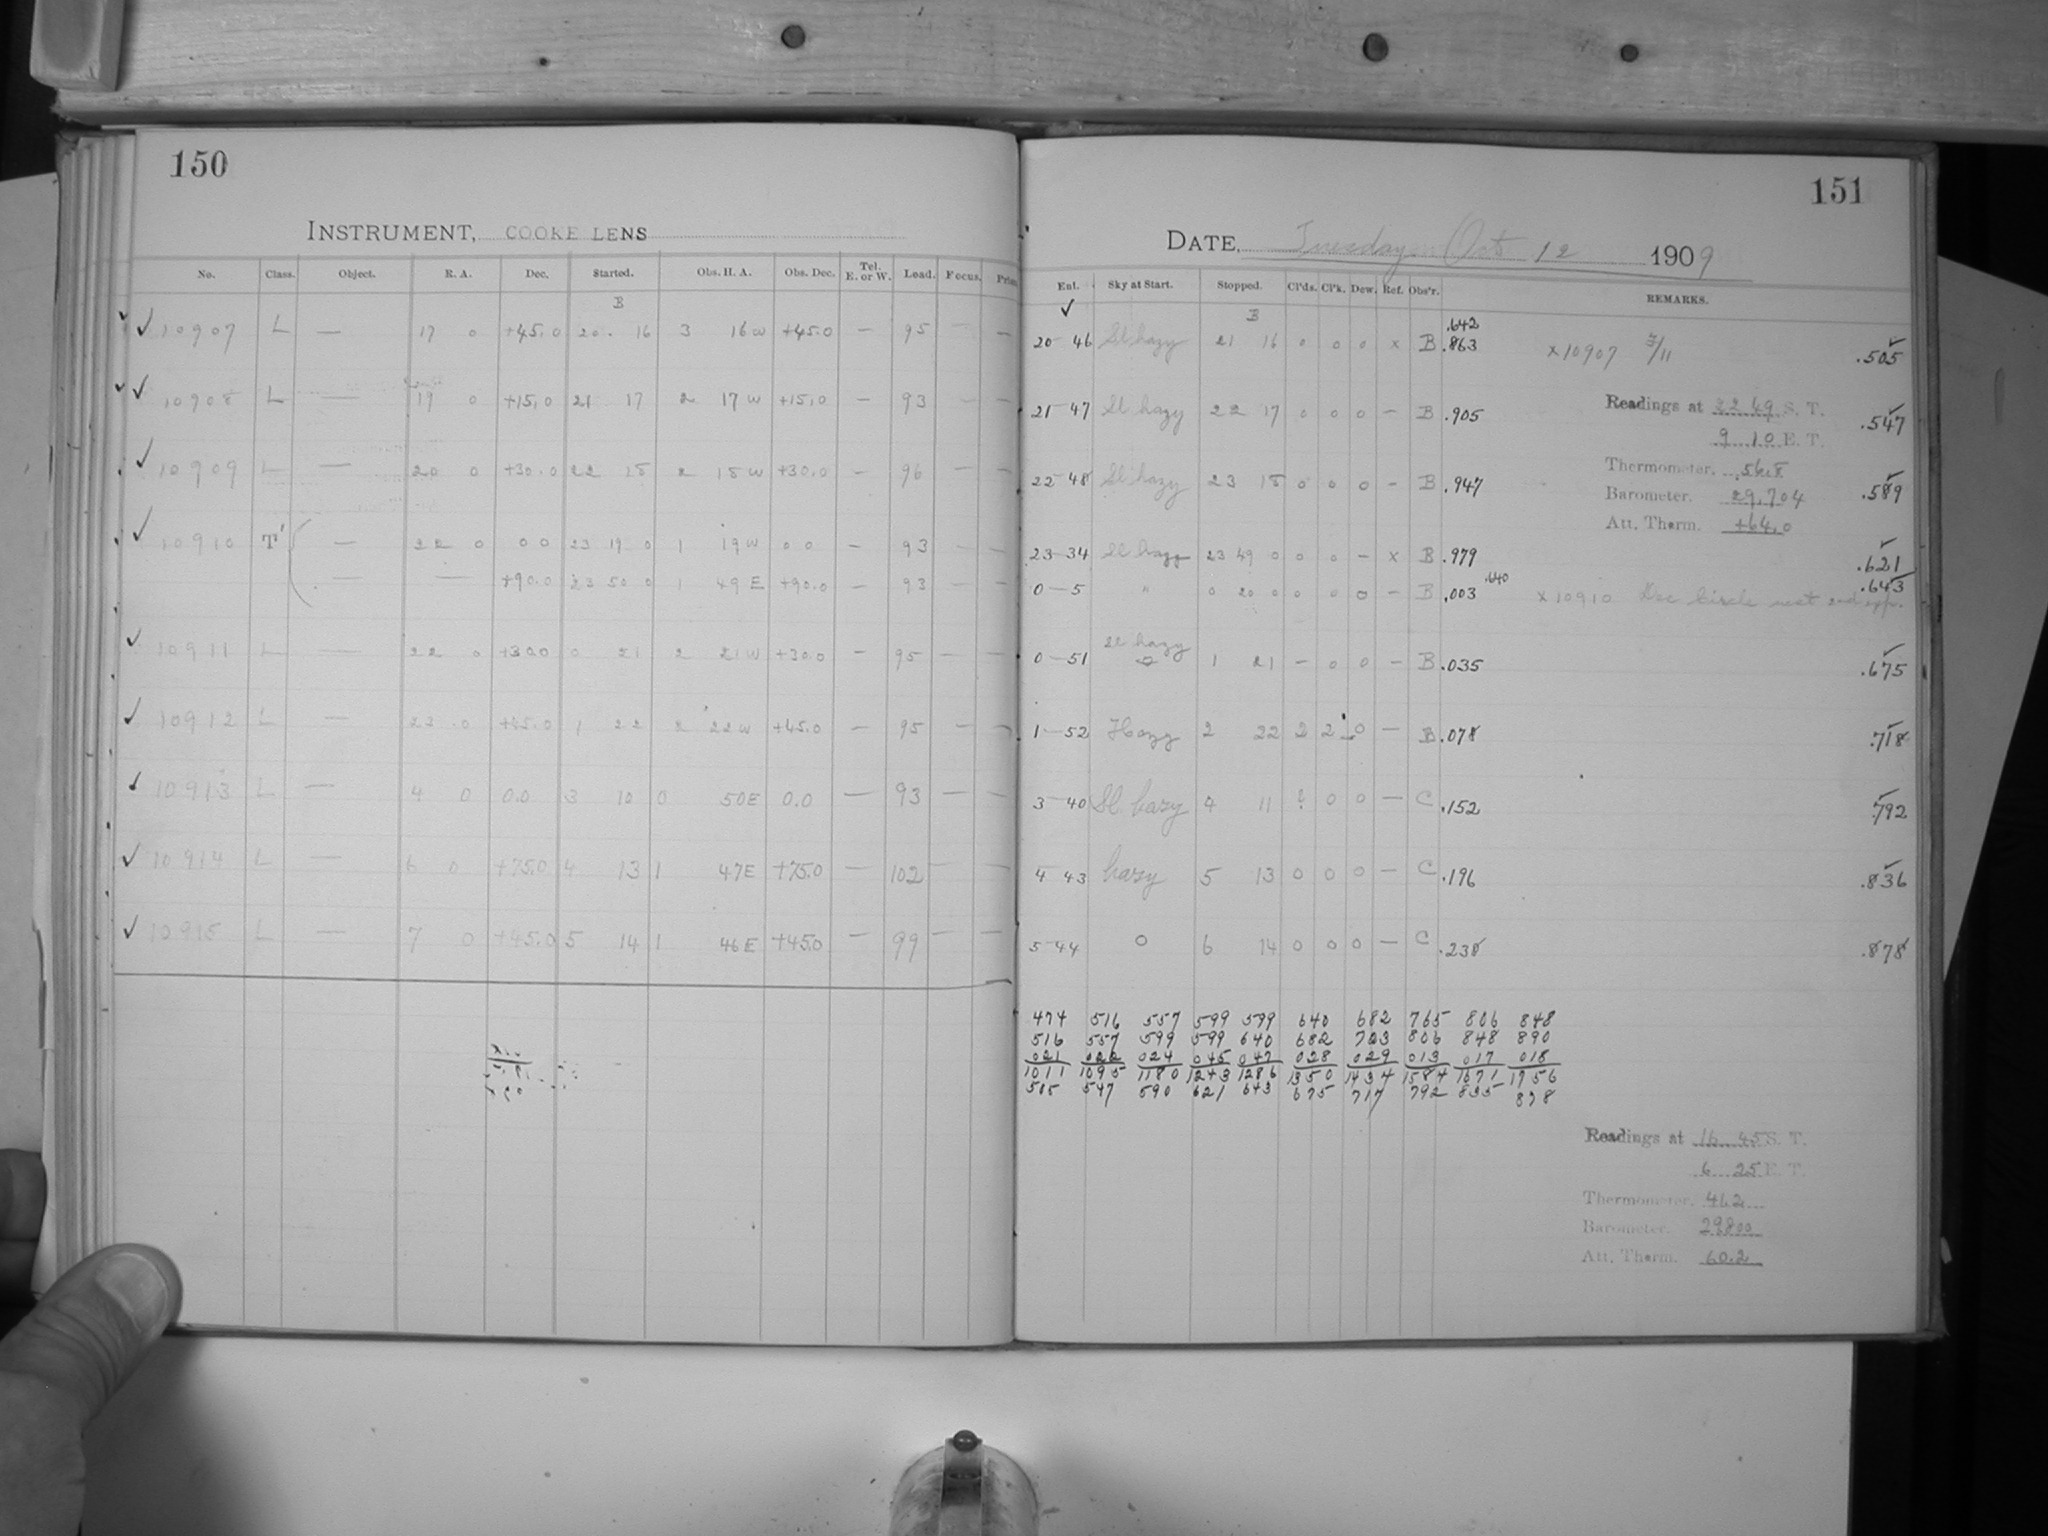 150
INSTRUMENT, COOKE LENS
No. Class. Object. R. A. Dec. Started. Obs. H. A. Obs. Dec. Tel. E. or W. Lead. Focus.
B
10907 L — 17 0 +45.0 20 16 3 16 W +45.0 — 95 — —
10908 L — 19 0 +15.0 21 17 2 17 W +15.0 — 93 — —
10909 L — 20 0 +30.0 22 18 2 18 W +30.0 — 96 — —
10910 T' — 22 0 0 0 23 19 0 1 19 W 0 0 — 93 — —
— — +90.0 23 50 0 1 49 E +90.0 — 93 — —
10911 L — 22 0 +30.0 0 21 2 21 W +30.0 — 95 — —
10912 L — 23 0 +45.0 1 22 2 22 W +45.0 — 95 — —
10913 L — 4 0 0.0 3 10 0 50 E 0.0 — 93 — —
10914 L — 6 0 +75.0 4 13 1 47 E +75.0 — 102 — —
10915 L — 7 0 +45.0 5 14 1 46 E +45.0 — 99 — —
151
DATE, Tuesday Oct 12 1909
Ent. Sky at Start. Stopped. Cl'ds. Cl'k. Dew. Ref. Obs'r. REMARKS.
B
.642
20-46 Sl hazy 21 16 0 0 0 x B .863 x 10907 3/11 .505
21-47 Sl hazy 22 17 0 0 0 - B .905 .547
Readings at 22 49 S. T.
9 10 E. T.
22-48 Sl hazy 23 18 0 0 0 - B .947 .589
Thermometer. 56.8
Barometer. 29.704
Att. Therm. +64.0
23-34 Sl hazy 23 49 0 0 0 - x B .979 .621
0-5 " 0 20 0 0 0 0 - B .003 .640 x 10910 Dec Circle .643
0-51 Sl hazy 1 21 - 0 0 - B .035 .675
1-52 Hazy 2 22 2 2 0 - B .078 .718
3-40 Sl. hazy 4 11 ? 0 0 - C .152 .792
4 43 hazy 5 13 0 0 0 - C .196 .836
5-44 0 6 14 0 0 0 - C .238 .878
474 516 557 599 599 640 682 765 806 848
516 557 599 599 640 682 723 806 848 890
021 022 024 045 047 028 029 013 017 018
1011 1095 1180 1243 1286 1350 1434 1584 1671 1756
505 547 590 621 643 675 717 792 835 878
Readings at 16 45 S. T.
6 25 E. T.
Thermometer. 46.2
Barometer. 29800
Att. Therm. 60.2